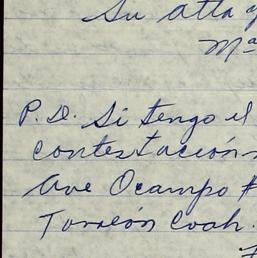 Su atta y
Mª
P. D. Si tengo el
contestación
Ave Ocampo #
Torreón Coah.